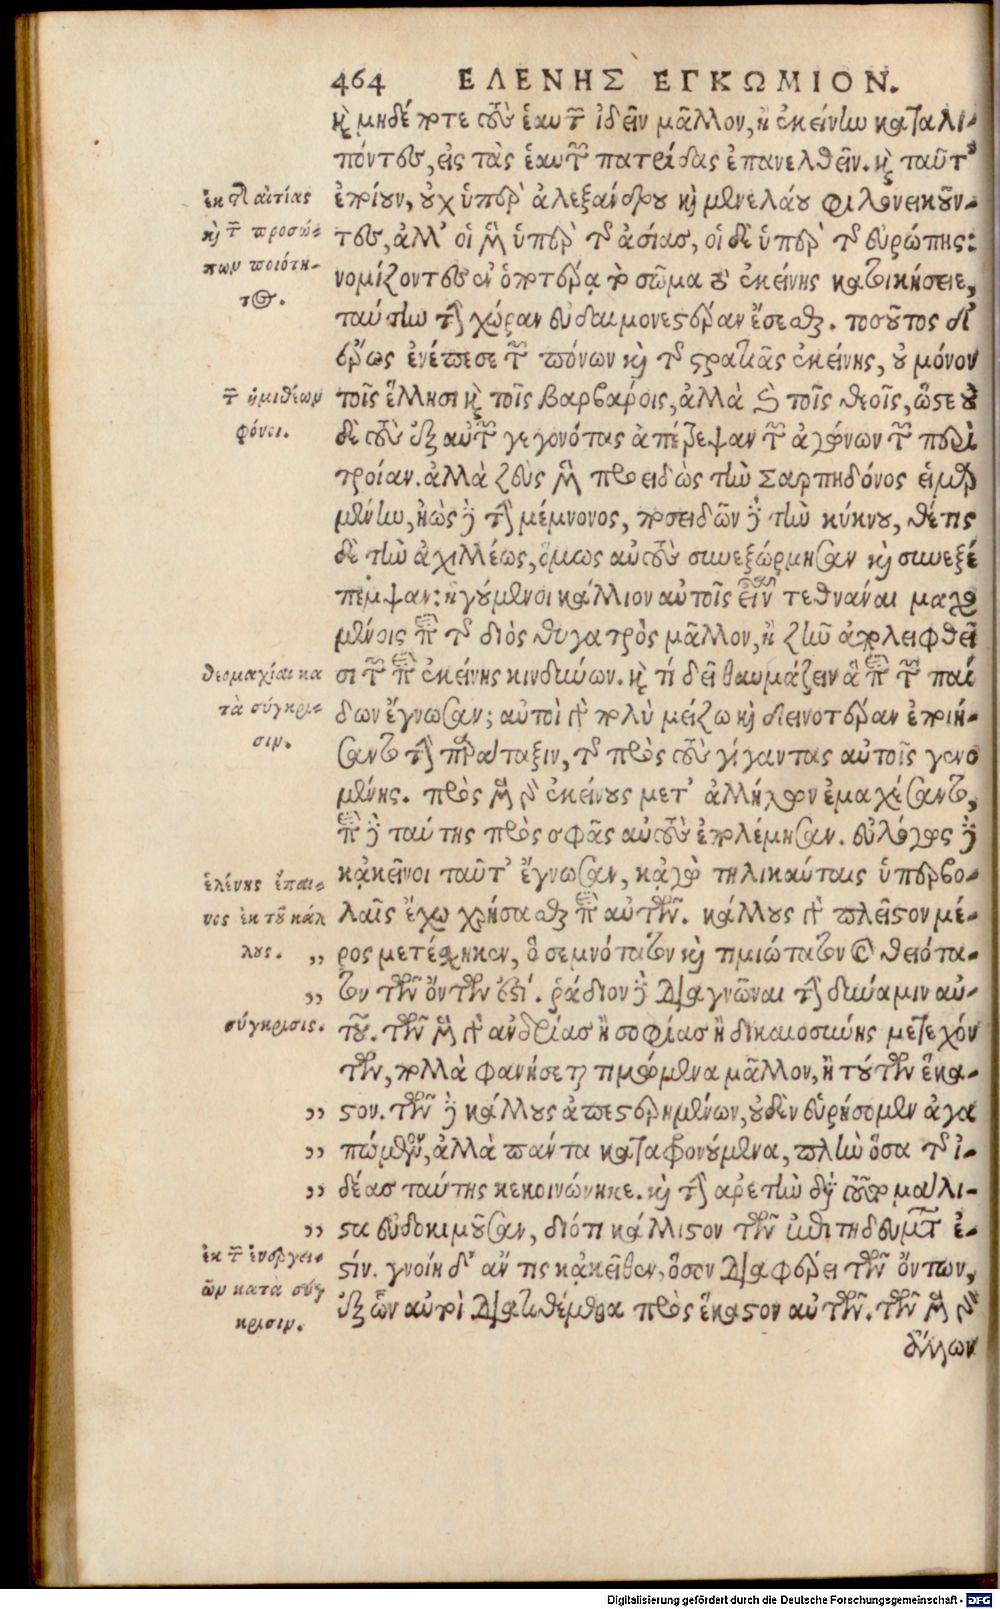 464 ΕΛΕΝΗΣ ΕΓΚΩΜΙΟΝ.
καὶ μηδέποτε τοὺς ἑαυτῶν ἰδεῖν μᾶλλον, ἢ ἐκείνην καταλι-
πόντες, εἰς τὰς ἑαυτῶν πατρίδας ἐπανελθεῖν. καὶ ταῦτ'
ἐποίουν, οὐχ ὑπὲρ ἀλεξάνδρου καὶ μενελάου φιλονεικοῦν-
τες, ἀλλ' οἱ μὲν ὑπὲρ τῆς ἀσίας, οἱ δὲ ὑπὲρ τῆς εὐρώπης:
νομίζοντες ἐν ὁποτέρᾳ τὸ σῶμα τὸ ἐκείνης κατοικήσειε,
ταύτην τὴν χώραν εὐδαιμονεστέραν ἔσεσθαι. τοσοῦτος δ'
ἔρως ἐνέπεσε τῶν πόνων καὶ τῆς στρατιᾶς ἐκείνης, οὐ μόνον
τοῖς ἕλλησι καὶ τοῖς βαρβάροις, ἀλλὰ καὶ τοῖς θεοῖς, ὥστε οὐ
δὲ τοὺς ἐξ αὐτῶν γεγονότας ἀπέτρεψαν τῶν ἀγώνων τῶν περὶ
τροίαν. ἀλλὰ ζεὺς μὲν προειδὼς τὴν Σαρπηδόνος εἱμαρ
μένην, ἠὼς δὲ τὴν μέμνονος, ποσειδῶν δὲ τὴν κύκνου, θέτις
δὲ τὴν ἀχιλλέως, ὅμως αὐτοὺς συνεξώρμησαν καὶ συνεξέ
πεμψαν: ἡγούμενοι κάλλιον αὐτοῖς εἶναι τεθνάναι μαχο
μένοις περὶ τῆς διὸς θυγατρὸς μᾶλλον, ἢ ζῆν ἀπολειφθεῖ
σι τῶν περὶ ἐκείνης κινδύνων. καὶ τί δεῖ θαυμάζειν ἃ περὶ τῶν παί
δων ἔγνωσαν; αὐτοὶ γὰρ πολὺ μείζω καὶ δεινοτέραν ἐποιή-
σαντο τὴν παράταξιν, τῆς πρὸς τοὺς γίγαντας αὐτοῖς γενο
μένης. πρὸς μὲν γὰρ ἐκείνους μετ' ἀλλήλων ἐμαχέσαντο,
περὶ δὲ ταύτης πρὸς σφᾶς αὐτοὺς ἐπολέμησαν. εὐλόγως δὲ
κἀκεῖνοι ταῦτ' ἔγνωσαν, κἀγὼ τηλικαύταις ὑπερβο-
λαῖς ἔχω χρήσασθαι περὶ αὐτῆς. κάλλους γὰρ πλεῖστον μέ-
ρος μετέσχηκεν, ὃ σεμνότατον καὶ τιμιώτατον καὶ θειότα-
τον τῶν ὄντων ἐστί. ῥᾴδιον δὲ διαγνῶναι τὴν δύναμιν αὐ-
τοῦ. τῶν μὲν γὰρ ἀνδρίας ἢ σοφίας ἢ δικαιοσύνης μετεχόν
των, πολλὰ φανήσεται τιμώμενα μᾶλλον, ἢ τούτων ἕκα-
στον. τῶν δὲ κάλλους ἀπεστερημένων, οὐδὲν εὑρήσομεν ἀγα
πώμενον, ἀλλὰ πάντα καταφρονούμενα, πλὴν ὅσα τῆς ἰ-
δέας ταύτης κεκοινώνηκε. καὶ τὴν ἀρετὴν διὰ τοῦτο μάλι-
στα εὐδοκιμοῦσαν, διότι κάλλιστον τῶν ἐπιτηδευμάτων ἐ-
στίν. γνοίη δ' ἄν τις κἀκεῖθεν, ὅσον διαφέρει τῶν ὄντων,
ἐξ ὧν αὐτοὶ διατιθέμεθα πρὸς ἕκαστον αὐτῶν. τῶν μὲν γὰρ
ἄλλων
ἐκ τῆς αἰτίας
καὶ τῶν προσώ-
πων ποιότη-
τος.
τῶν ἡμιθέων
φόνοι.
θεομαχίαι κα
τὰ σύγκρι-
σιν.
ἑλένης ἔπαι-
νος ἐκ τοῦ κάλ
λους. ,,
,,
σύγκρισις.
,,
,,
,,
,,
ἐκ τῶν ἐνεργει-
ῶν κατὰ σύγ
κρισιν.
Digitalisierung gefördert durch die Deutsche Forschungsgemeinschaft - DFG